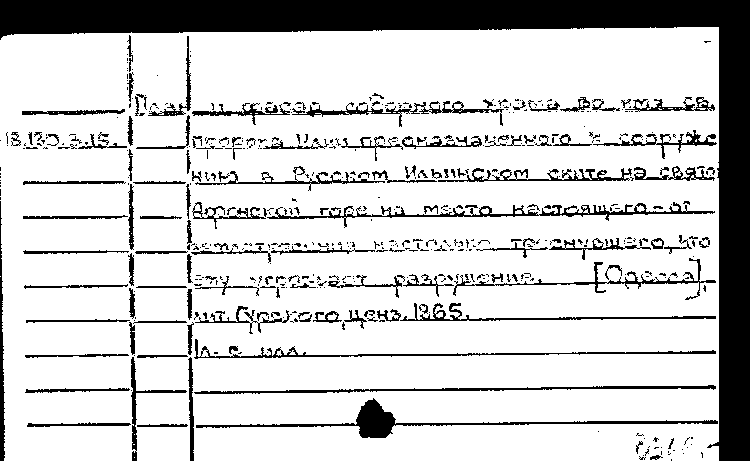 План и фасад соборного храма во имя св.
18.130.3.15. пророка Илии предназначенного к сооруже
нию в Русском Ильинском ските на святой
Афонской горе, на место настоящего - от
землетрясения настолько треснувшего, что
ему угрожает разрушение. [Одесса],
лит. Гурского, ценз. 1865.
1 л. с илл.